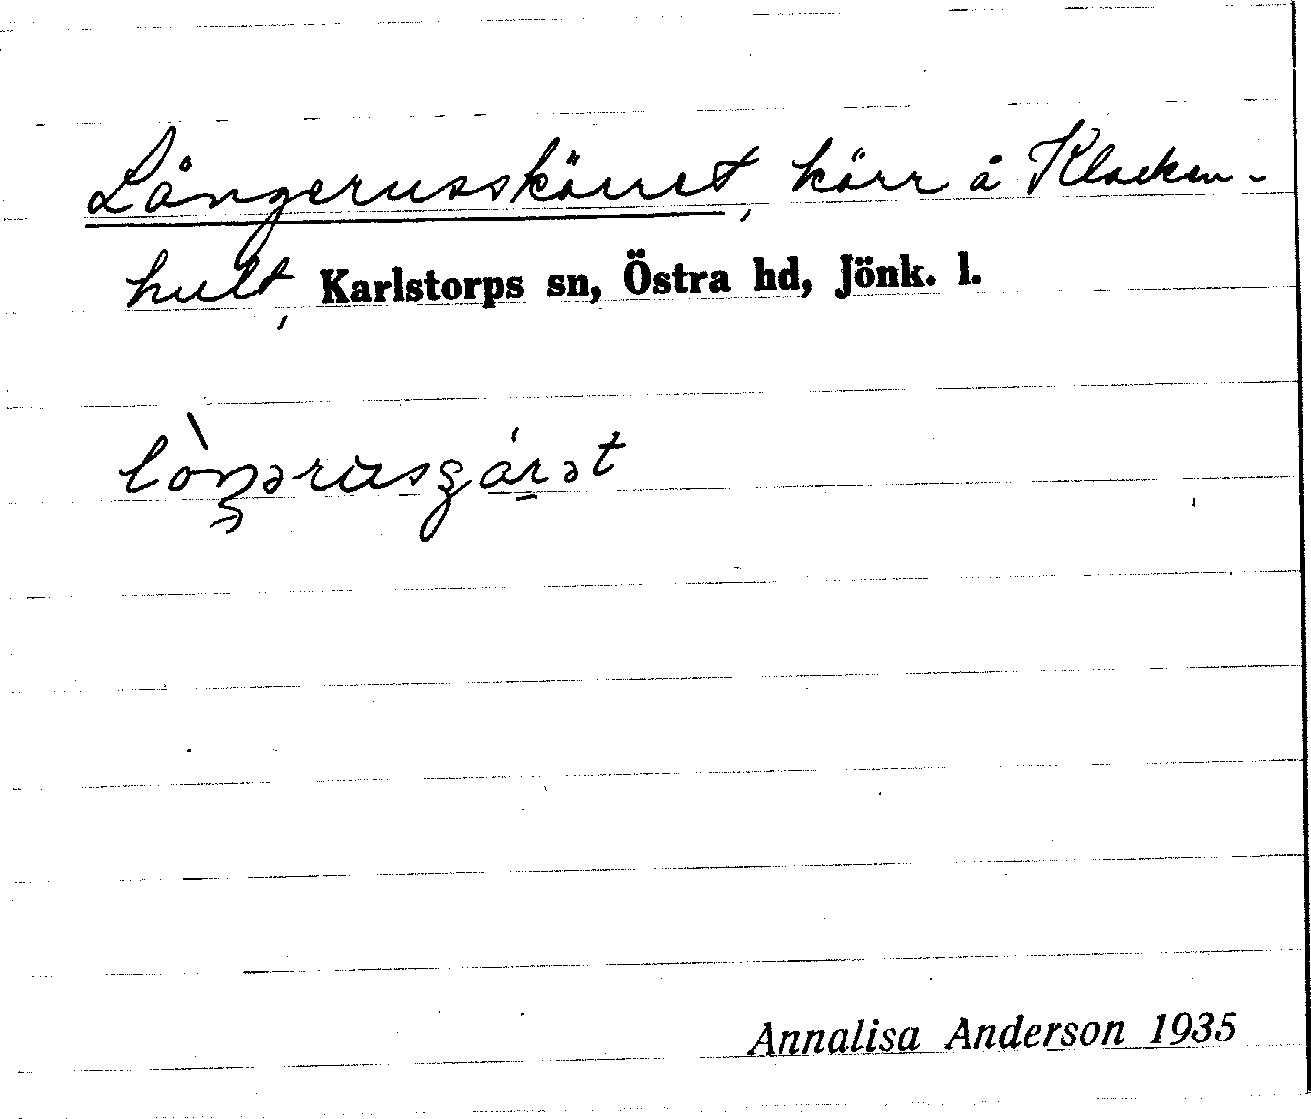 Långerusskärret, kärr å Klacken-
hult, Karlstorps sn, Östra hd, Jönk. l.
Annalisa Anderson 1935